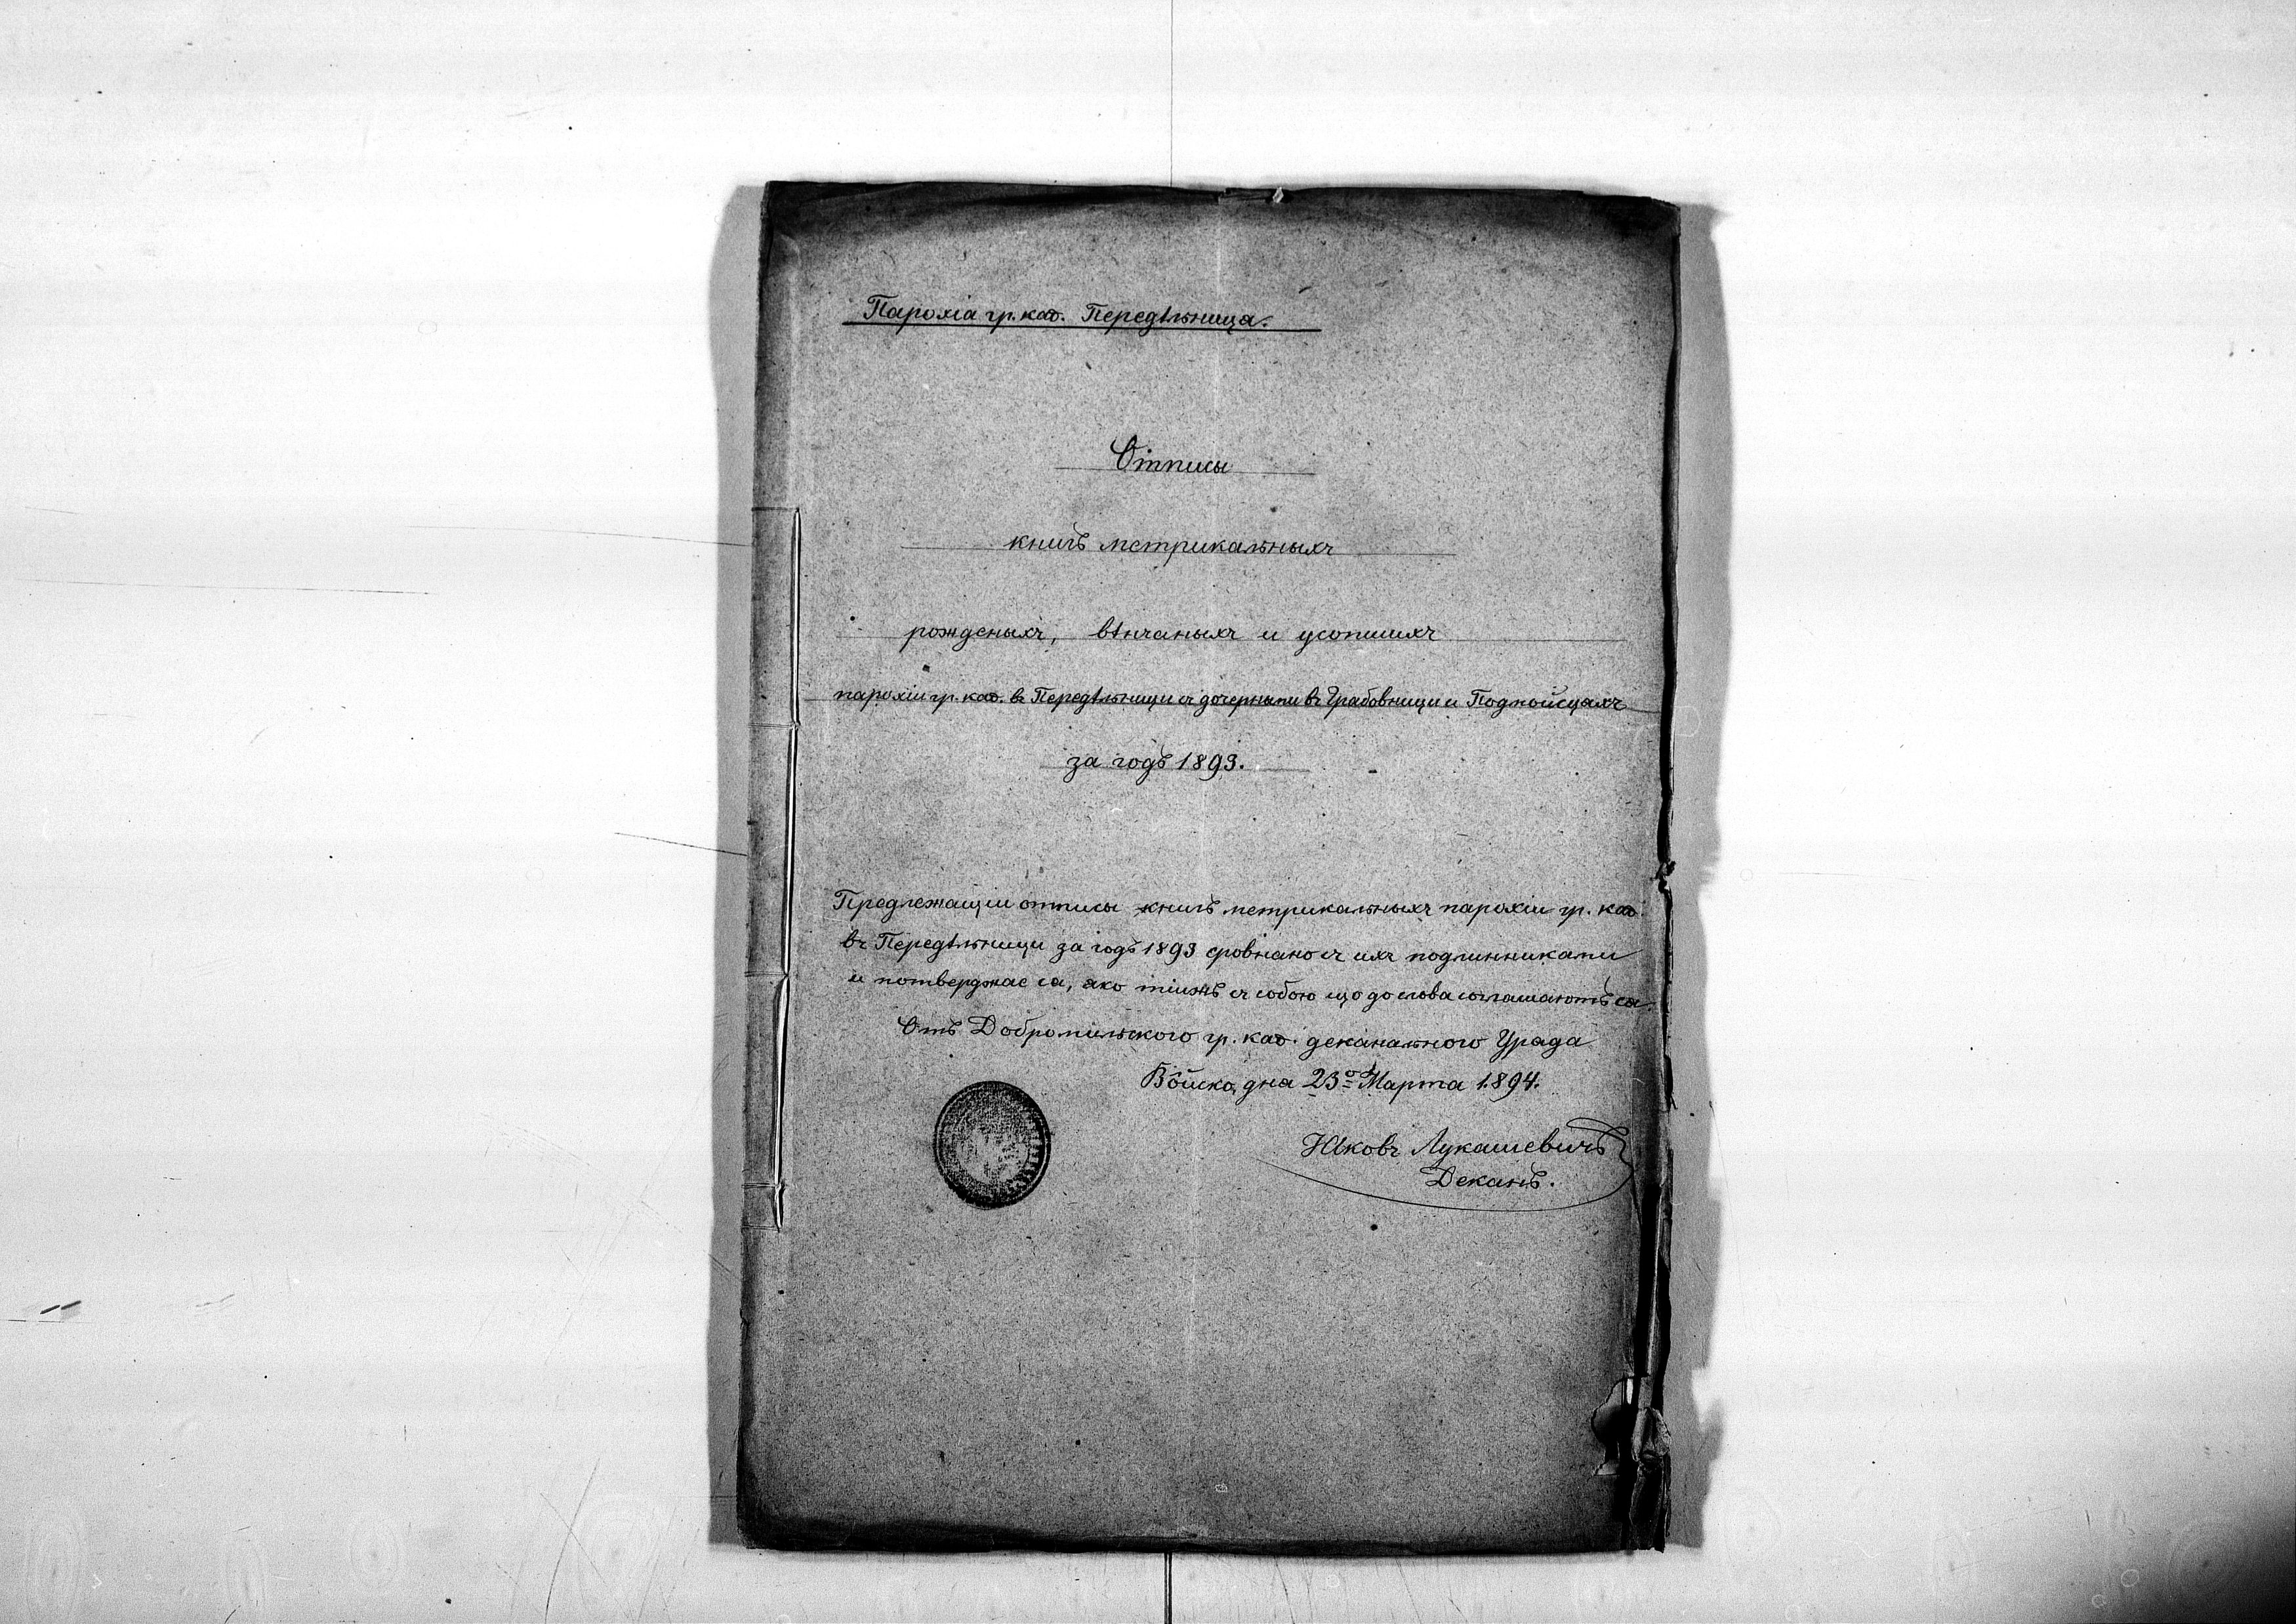 Парохіа гр. каѳ. Передѣльница.
Отписы
книгъ метрикальныхъ
рожденыхъ, вѣнчаныхъ и усопшихъ
парохіи гр. каѳ. въ Передѣльници съ дочерными въ Грабовници и Подмойсцахъ
за годъ 1893.
Предлежащіи отписы книгъ метрикальныхъ парохіи гр. каѳ.
въ Передѣльници за годъ 1893 сровнано съ ихъ подлинниками
и потверджае са, ако тіижъ съ собою що до слова соглашаютъ са.
Отъ Добромильского гр. каѳ. деканального Уряда
Вôйско, дна 23го Марта 1894.
Яковъ Лукашевичъ
Деканъ.